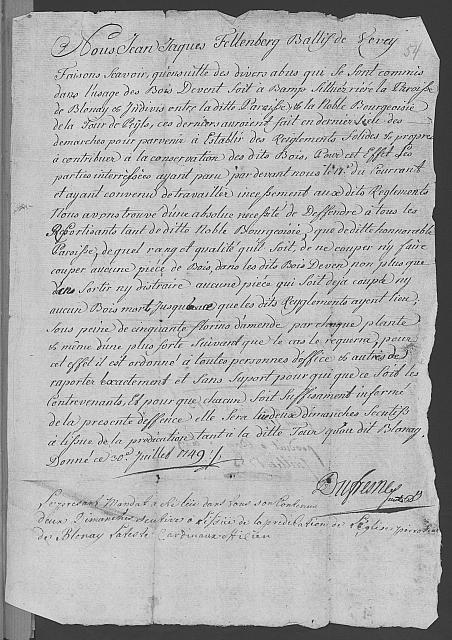 54
Nous Jean Jaques Fellenberg Ballif de Vevey
Faisons Scavoir, qu'ensuitte des divers abus qui se sont commis
dans l'usage des Bois Devent soit à Bamps rière la Paroisse
de Blonay & Indivis entre la ditte Paroisse, & la Noble Bourgeoisie
de la Tour de Peylz, ces derniers auroient fait en dernier des
demarches pour parvenir à Etablir des Reiglements Solides & propres
à contribuer à la conservation des dits Bois, Pour cet Effet Les
parties interressées ayant paru par devant nous le du Courrant
et ayant convenu de travailler incessement aux dits Reglements
Nous avons trouvé d'une absolue necessité de Deffendre à tous les
Ressortisants tant de ditte Noble Bourgeoisie, que de ditte honnorable
Paroisse, de quel rang et qualité qu'il soit, de ne couper n'y faire
couper aucune pièce de Bois, dans les dits Bois Deven, non plus que
d'en Sortir n'y distraire aucune pièce qui soit deja coupé n'y
aucun Bois mort, jusqu'à ce que les dits Reglements ayent lieu,
Sous peine de cinquante florins d'amende par chaque plante
& même d'une plus forte Suivant que le cas le requerra, pour
cet effet il est ordonné à toutes personnes d'office & autres de
raporter Exactement et Sans Suport pour qui que ce Soit les
Contrevenants, Et pour que chacun Soit Suffisament informé
de la presente deffence elle Sera lüe deux dimanches Secutifs
à l'issue de la predication tant à la ditte Tour qu'au dit Blonay,
Donné ce 30e Juillet 1749
Dufresne
Le present Mandat a été lüe dans tous son Contenus
deux Dimanches secutives a l'issüe de la predication de l'Eglise
de Blonay l'ateste